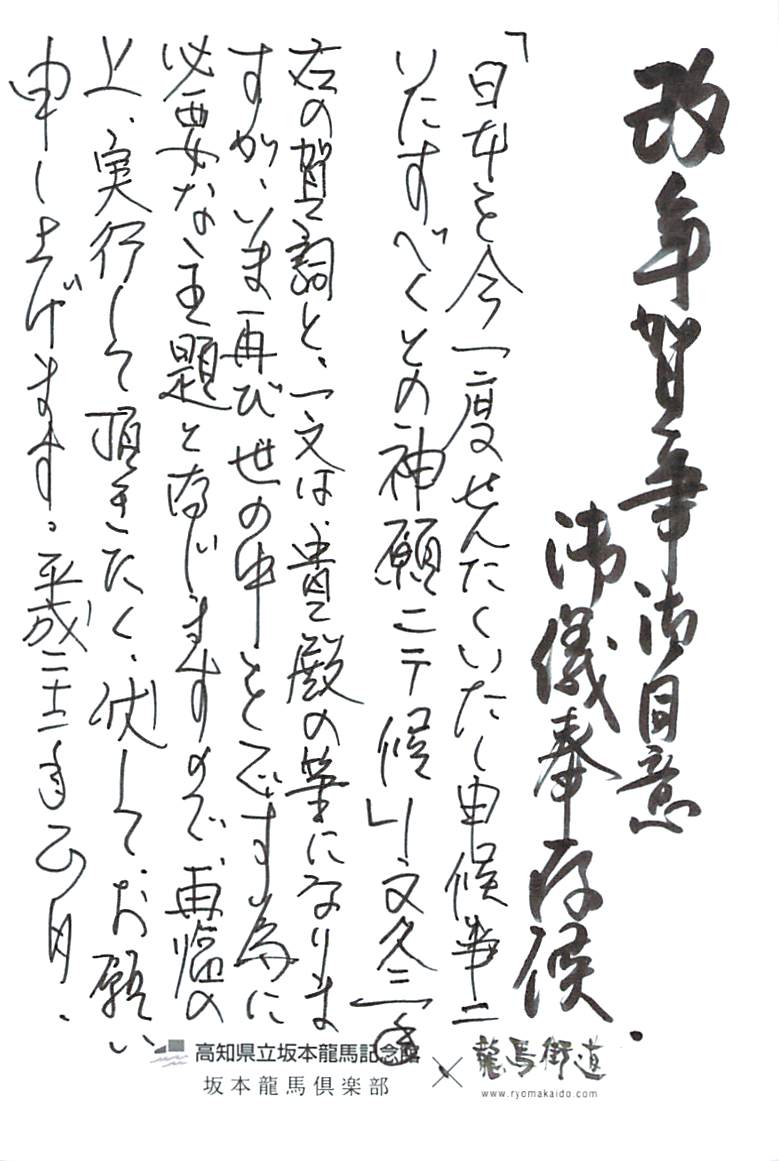 改年賀事御同意
御儀奉存候。
「日本を今一度せんたくいたし申候事ニ
いたすべくとの神願ニテ候」―文久三年
右の賀詞と、一文は、貴殿の筆になりま
すが、いま再び世の中ことです為に
必要な主題と存じますので、再臨の
上、実行して頂きたく、伏して、お願い
申し上げます。平成二十二年正月.
高知県立坂本龍馬記念館
坂本龍馬倶楽部
×
龍馬街道
www.ryomakaido.com